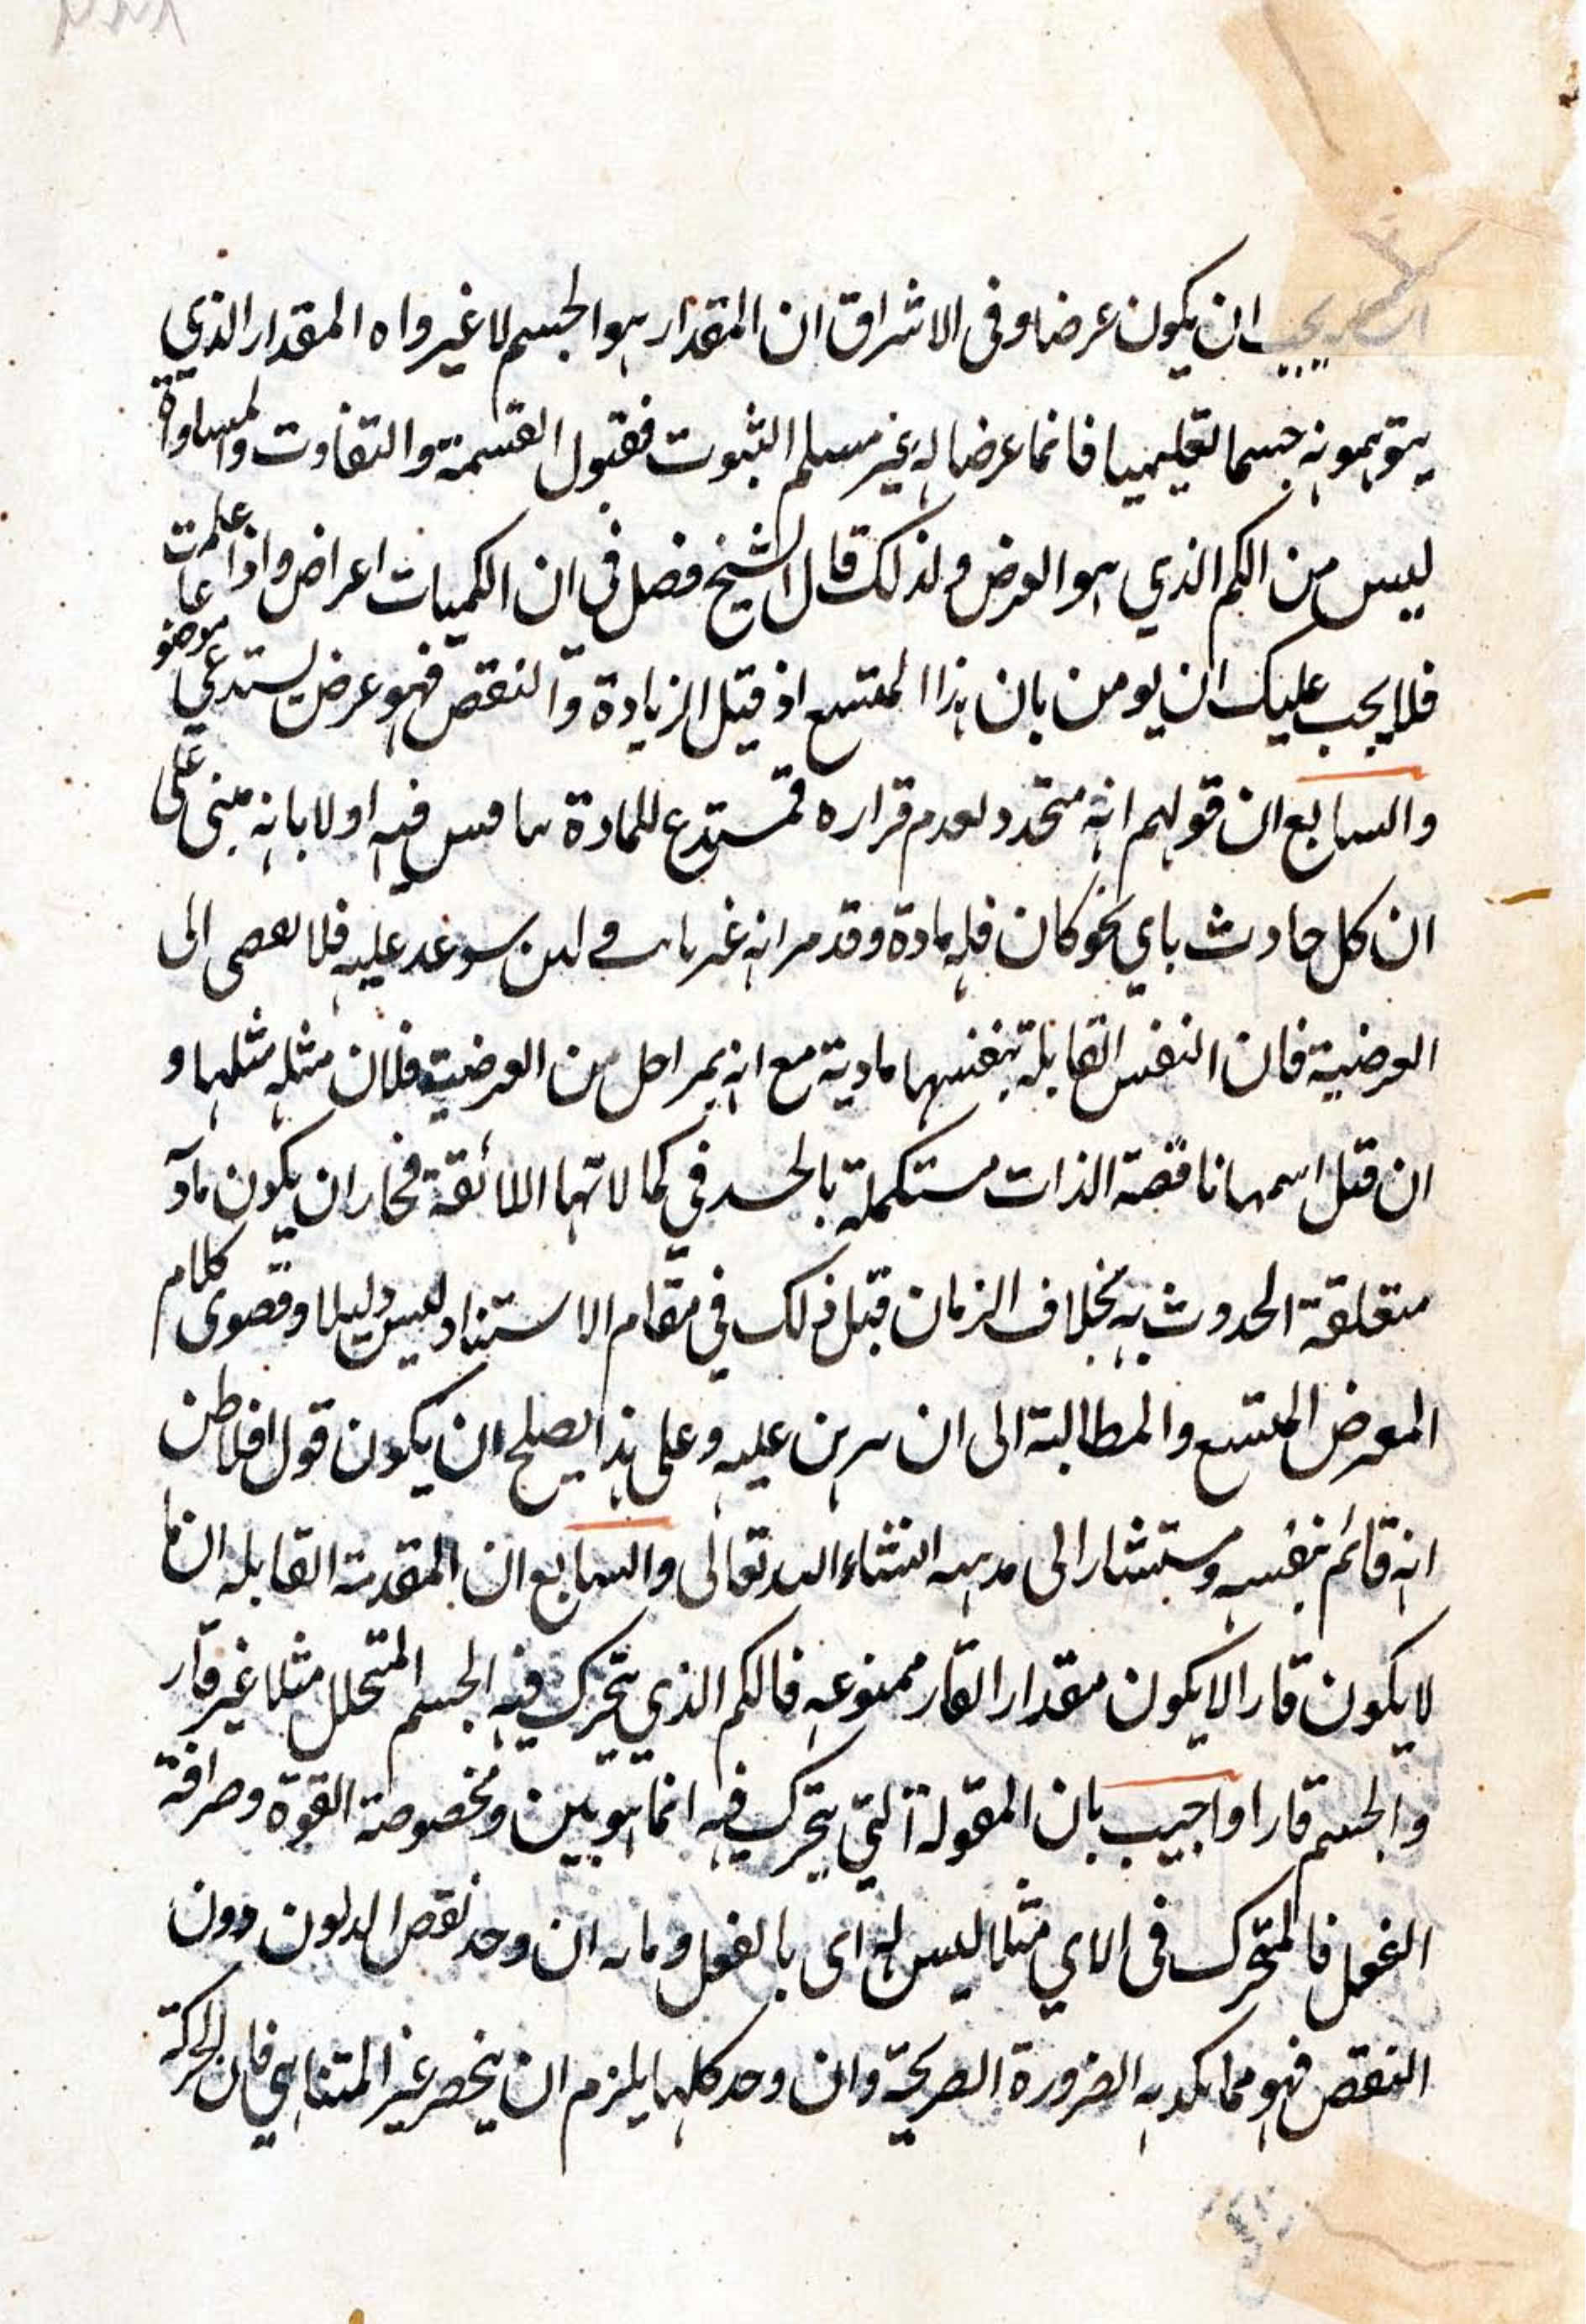 ان يكون عرضا وفى الاشراق ان المقدار هو الجسم لا غير واه المقدار الذي
يتوهمونه جسما تعليميا فانما عرضا له غير مسلم الثبوت فقبول القسمة والتفاوت والمساواة
ليس من الكم الذي هو العرض ولذلك قال الشيخ فصل في ان الكميات اعراض واذا علمت
فلا يجب عليك ان يومن بان هذا المتسع اذ قبل الزيادة والنقص فهو عرض يستدعي موضوعا
والسابع ان قولهم انه متجدد لعدم قراره فمستدع للمادة فيه اولا بانه مبنى على
ان كل حادث باي نحو كان فله مادة وقد مر انه عليه فلا الى
العرضية فان النفس القابلة بنفسها مادية مع انه بمراحل من العرضية فلان مثله مثلها و
ان قيل اسمها ناقصة الذات مستكملة في كمالاتها اللائقة ان يكون
متعلقة الحدوث به بخلاف الزمان قيل ذلك في مقام الاستناد ليس دليلا وقصوى كلام
المعرض المتسع والمطالبة الى ان عليه وعلى هذا يصلح ان يكون قول افلاطن
انه قائم بنفسه الى انشاء الله تعالى والسابع ان المقدمة القابلة ان ما
لا يكون قارا لا يكون مقدارا لقار ممنوعه فالكم الذي يتحرك فيه الجسم المتخلل مثلا غير قار
والجسم قارا واجيب بان المقولة التي يتحرك فيه انما هو بين ومخصوصة القوة وصرافة
الفعل فالمتحرك فى الاي مثلا ليس له اى بالفعل وما به ان وجد نقص دون
النقص فهو مما يكذبه الضرورة الصريحة وان وجد كلها يلزم ان ينحصر غير المتناهي فان الحركة